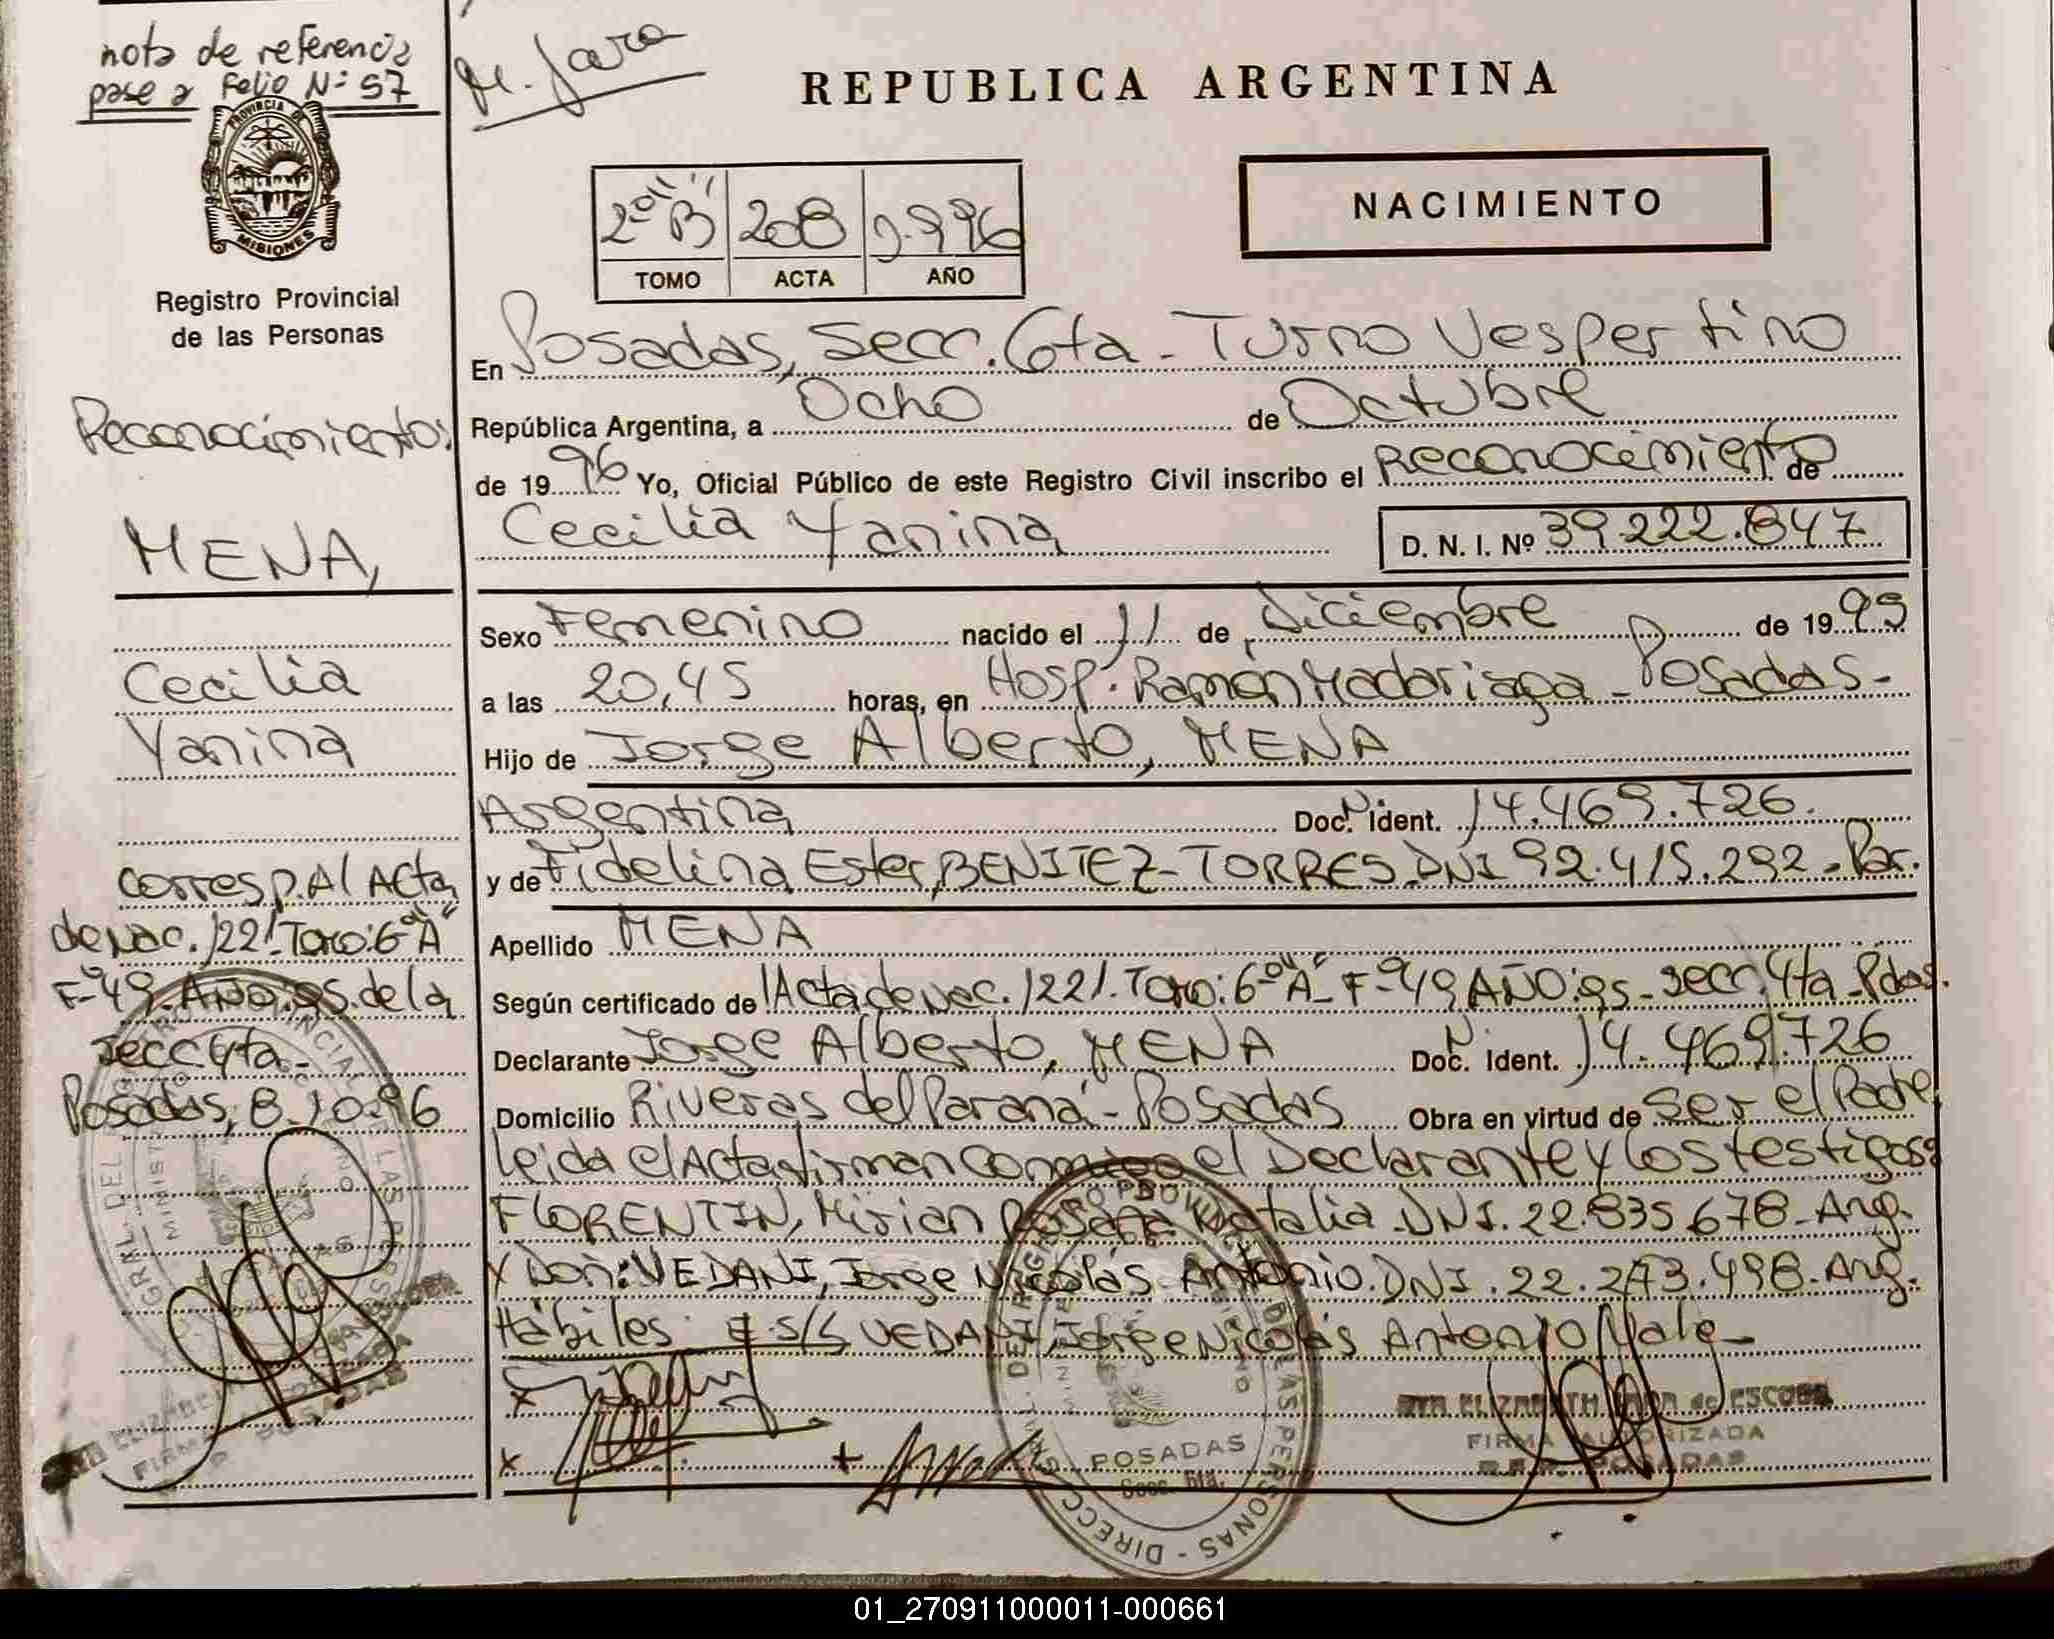 nota de referencia
pase a Folio Nº 57
M. Jara
REPUBLICA ARGENTINA
PROVINCIA DE
MISIONES
2º "B" 208 1.996
TOMO ACTA AÑO
NACIMIENTO
Registro Provincial
de las Personas
En Posadas, Secc. 6ta - Turno Vespertino
República Argentina, a Ocho de Octubre
Reconocimiento:
de 1996 Yo, Oficial Público de este Registro Civil inscribo el Reconocimiento de
Cecilia Yanina D. N. I. Nº 39.222.847
MENA,
Cecilia
Yanina
Sexo Femenino nacido el 11 de Diciembre de 1995
a las 20,45 horas, en Hosp. Ramón Madariaga - Posadas -
Hijo de Jorge Alberto, MENA
Argentina Doc. Nº ident. 14.469.726.
y de Fidelina Ester, BENITEZ - TORRES DNI 92.415.292 - Par.
Apellido MENA
Según certificado de Acta de Nac. 1221. Tomo: 6º "A" - Fº 49 AÑO: 95 - Secc. 4ta - Pdas.
Declarante Jorge Alberto, MENA Doc. Nº Ident. 14.469.726
Domicilio Riveras del Paraná - Posadas Obra en virtud de Ser el Padre
Leida el Acta firman conmigo el Declarante y los testigos:
FLORENTIN, Mirian Rosana Natalia DNI. 22.835.678 - Arg.
Y Don: VEDANI, Jorge Nicolás Antonio. DNI. 22.273.498 - Arg.
Hábiles E S/S VEDANI, Jorge Nicolás Antonio Vale -
corresp. Al Acta
de Nac. 1221 - Tomo: 6º "A"
Fº 49 - AÑO: 95. de la
Secc 4ta -
Posadas, 8 - 10 - 96
x
x +
ELIZABETH JARA de ESCOBAR
FIRMA AUTORIZADA
R.P.P. POSADAS
POSADAS
Secc. 6ta.
01_270911000011-000661